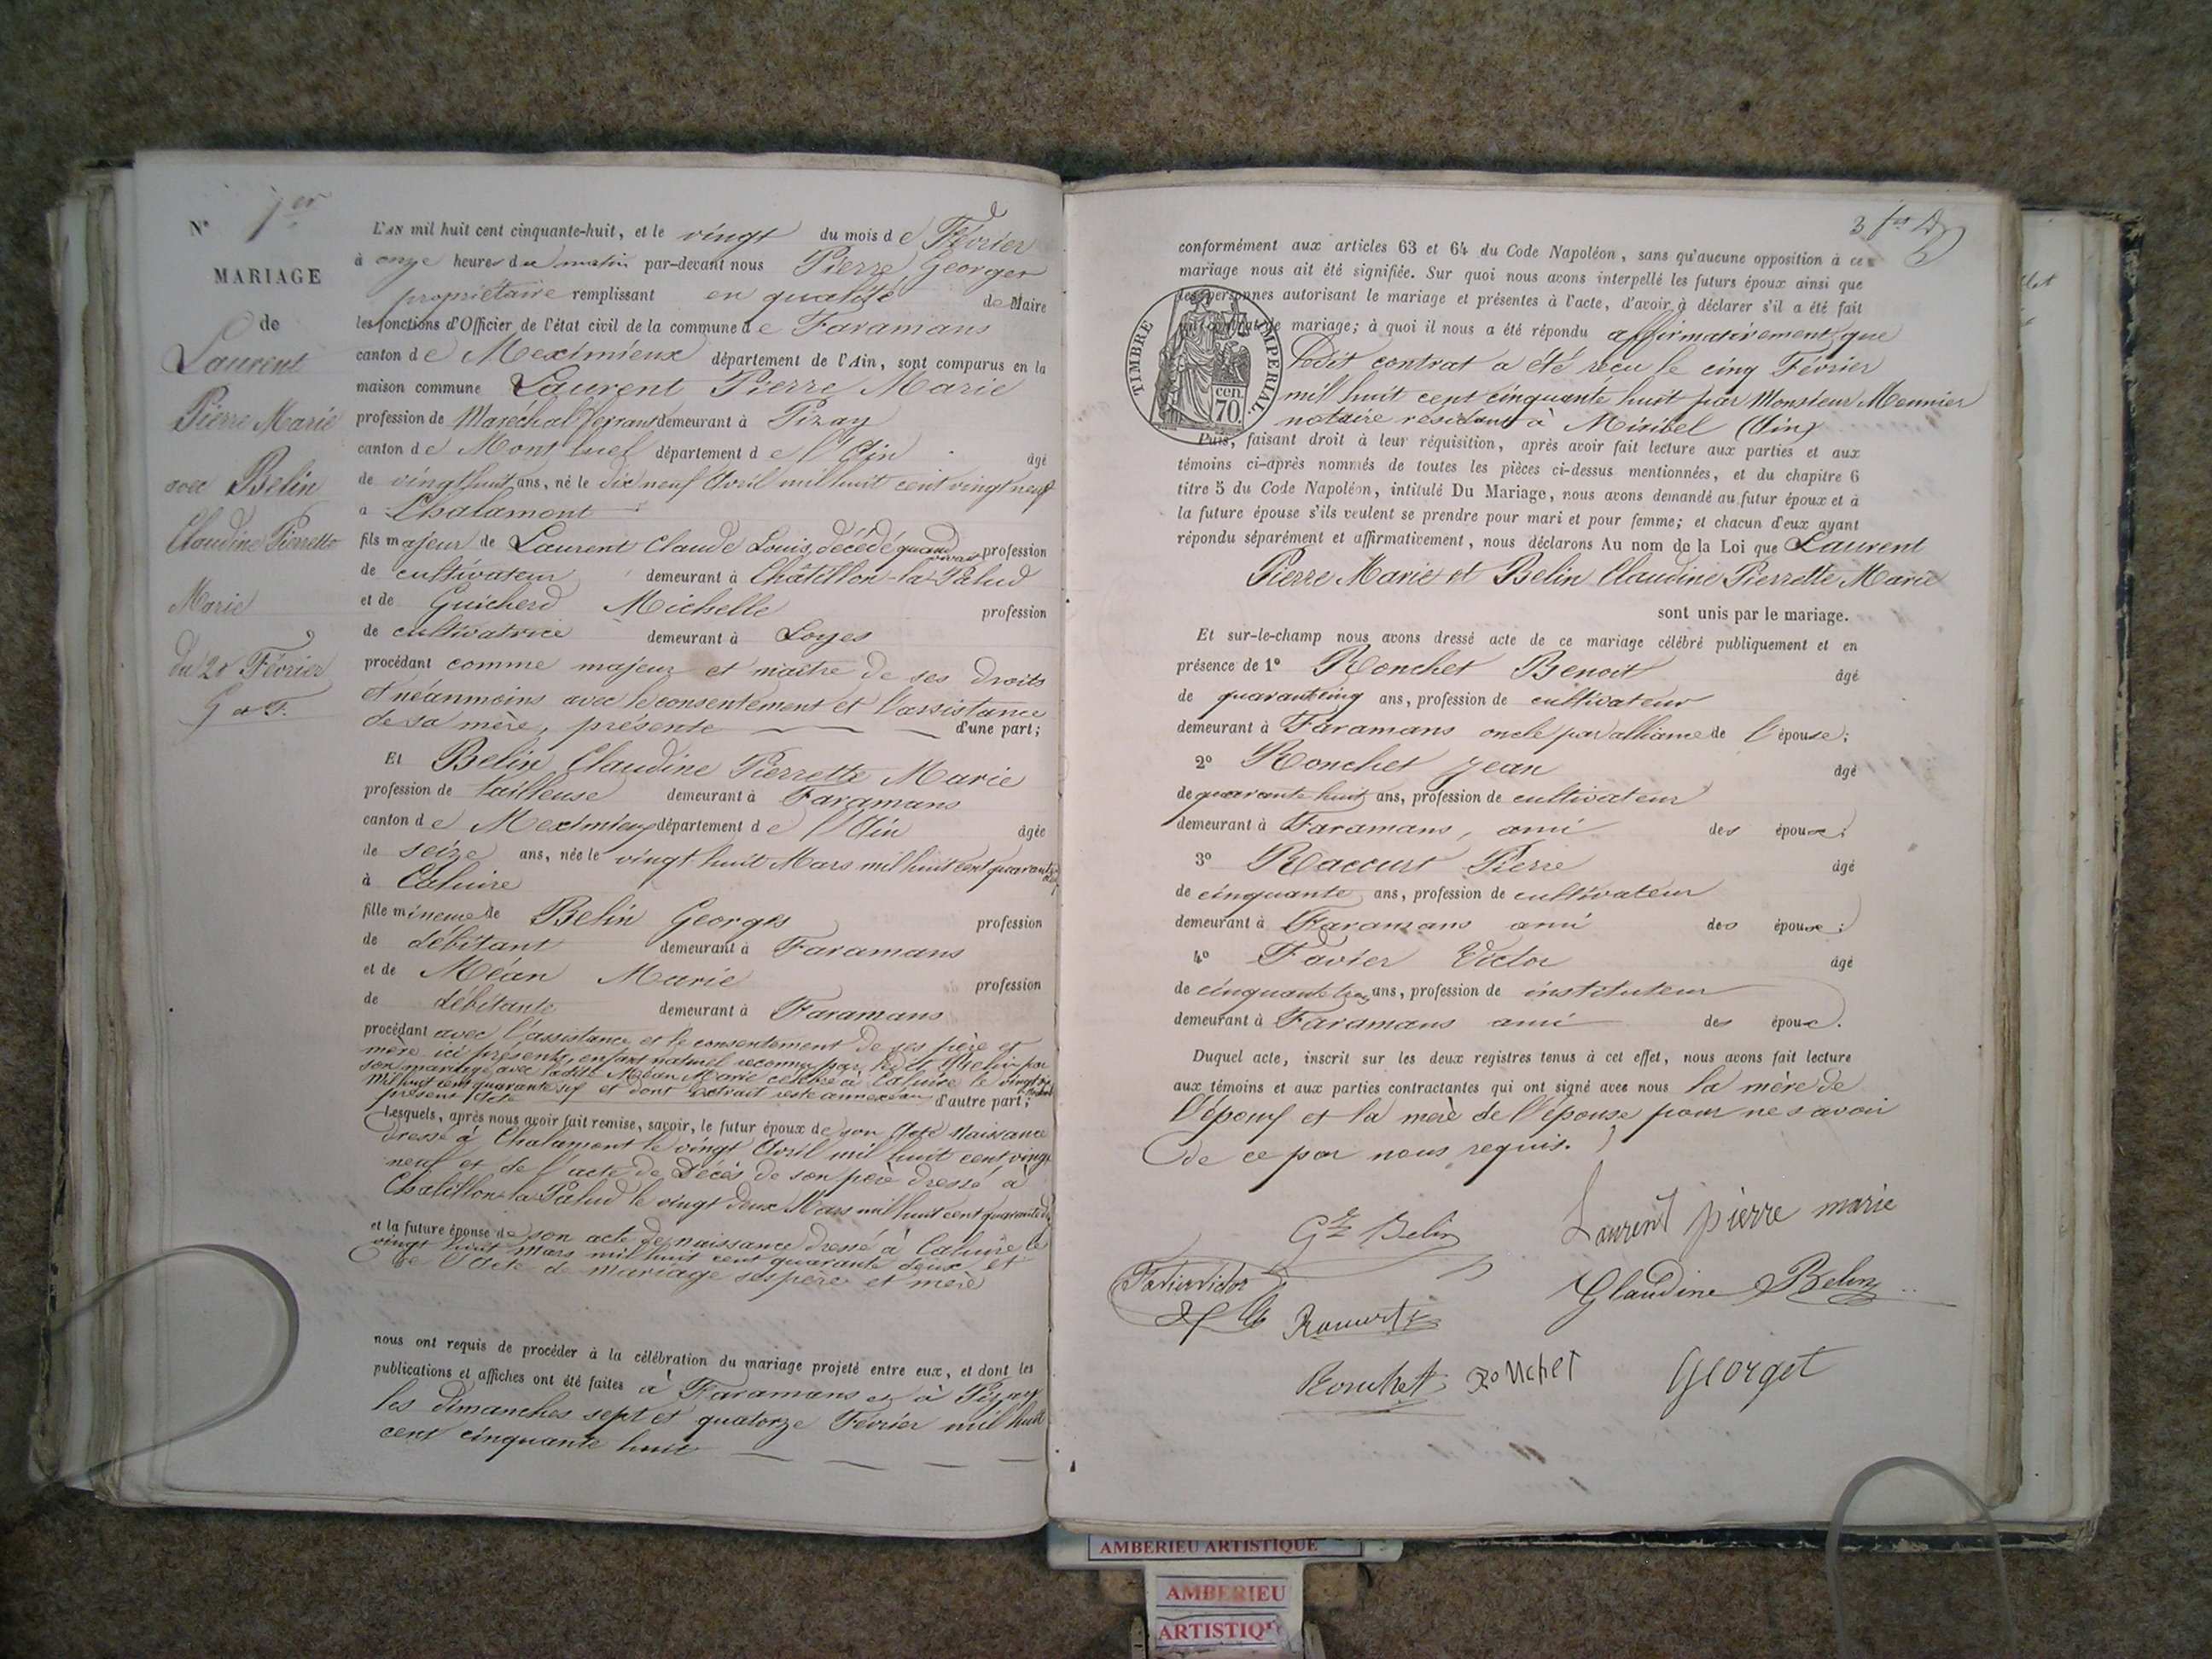 N° 1er
MARIAGE
de
Laurent
Pierre Marie
avec Belin
Claudine Pierrette
Marie
du 20 Février
L'AN mil huit cent cinquante-huit, et le vingt du mois de Février
à onze heures du matin par-devant nous Pierre Georget
propriétaire remplissant en qualité de Maire
les fonctions d'Officier de l'état civil de la commune de Faramans
canton de Meximieux département de l'Ain, sont comparus en la
maison commune Laurent Pierre Marie
profession de Marechal ferrant demeurant à Pizay
canton de Mont luel département de l'Ain âgé
de vingt huit ans, né le dix neuf Avril mil huit cent vingt neuf
à Chalamont
fils majeur de Laurent Claude Louis, décédé quand vivait profession
de cultivateur demeurant à Châtillon-la-Palud
et de Guicherd Michelle profession
de cultivatrice demeurant à Loyes
procédant comme majeur et maître de ses droits
et néanmoins avec le consentement et l'assistance
de sa mère, présente d'une part;
Et Belin Claudine Pierrette Marie
profession de tailleuse demeurant à Faramans
canton de Meximieux département de l'Ain âgée
de seize ans, née le vingt huit Mars mil huit cent quarante deux
à Caluire
fille mineure de Belin Georges profession
de débitant demeurant à Faramans
et de Méan Marie profession
de débitante demeurant à Faramans
procédant avec l'assistance et le consentement de ses père et
mère ici présents, enfant naturel reconnu par ledit Belin par
son mariage avec ladite Méan Marie célébré à Caluire le vingt
mil huit cent quarante et dont extrait reste annexé au
présent acte d'autre part;
Lesquels, après nous avoir fait remise, savoir, le futur époux de son Acte Naissance
dressé à Chalamont le vingt Avril mil huit cent vingt
neuf et de l'acte de Décès de son père dressé à
Châtillon-la-Palud le vingt deux Mars mil huit cent quarante
et la future épouse de son acte de naissance dressé à Caluire le
vingt huit Mars mil huit cent quarante deux et
de l'acte de mariage ses père et mère
nous ont requis de procéder à la célébration du mariage projeté entre eux, et dont les
publications et affiches ont été faites à Faramans et à Pizay
les dimanches sept et quatorze Février mil huit
cent cinquante huit
3
conformément aux articles 63 et 64 du Code Napoléon, sans qu'aucune opposition à ce
mariage nous ait été signifiée. Sur quoi nous avons interpellé les futurs époux ainsi que
les personnes autorisant le mariage et présentes à l'acte, d'avoir à déclarer s'il a été fait
un contrat de mariage; à quoi il nous a été répondu affirmativement que
TIMBRE IMPERIAL
cen. 70
ledit contrat a été reçu le cinq Février
mil huit cent cinquante huit par Monsieur Meunier
notaire résidant à Miribel (Ain)
Puis, faisant droit à leur réquisition, après avoir fait lecture aux parties et aux
témoins ci-après nommés de toutes les pièces ci-dessus mentionnées, et du chapitre 6
titre 5 du Code Napoléon, intitulé Du Mariage, nous avons demandé au futur époux et à
la future épouse s'ils veulent se prendre pour mari et pour femme; et chacun d'eux ayant
répondu séparément et affirmativement, nous déclarons Au nom de la Loi que Laurent
Pierre Marie et Belin Claudine Pierrette Marie
sont unis par le mariage.
Et sur-le-champ nous avons dressé acte de ce mariage célébré publiquement et en
présence de 1° Ronchet Benoit âgé
de quarante cinq ans, profession de cultivateur
demeurant à Faramans oncle par alliance de l'épouse;
2° Ronchet Jean âgé
de quarante huit ans, profession de cultivateur
demeurant à Faramans, ami des époux;
3° Raccurt Pierre âgé
de cinquante ans, profession de cultivateur
demeurant à Faramans ami des époux;
4° Favier Victor âgé
de cinquante trois ans, profession de instituteur
demeurant à Faramans ami des époux.
Duquel acte, inscrit sur les deux registres tenus à cet effet, nous avons fait lecture
aux témoins et aux parties contractantes qui ont signé avec nous la mère de
l'époux et la mère de l'épouse pour ne savoir
de ce par nous requis.
Laurent pierre marie
Gges Belin
Favier Victor
Claudine Belin
Raccurt
Ronchet Ronchet Georget
AMBERIEU ARTISTIQUE
AMBERIEU
ARTISTIQUE